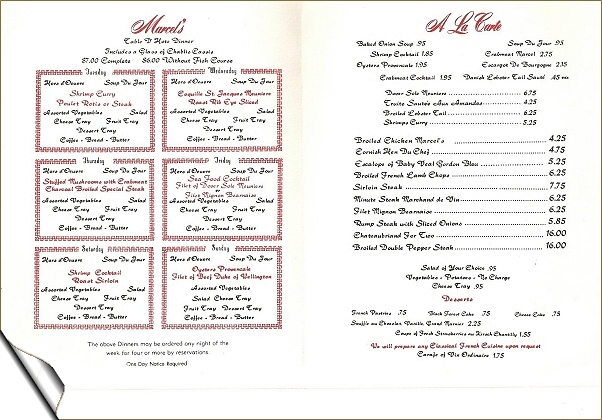 Marcel's
Table D'Hote Dinner
Includes a Glass of Chablis Cassis
$7.00 Complete $6.00 Without Fish Course
Tuesday
Hors d'Ouvere Soup Du Jour
Shrimp Curry
Poulet Rotis or Steak
Assorted Vegetables Salad
Cheese Tray Fruit Tray
Dessert Tray
Coffee - Bread - Butter
Wednesday
Hors d'Ouvere Soup Du Jour
Coquille St. Jacques Meuniere
Roast Rib Eye Sliced
Assorted Vegetables Salad
Cheese Tray Fruit Tray
Dessert Tray
Coffee - Bread - Butter
Thursday
Hors d'Ouvere Soup Du Jour
Stuffed Mushrooms with Crabmeat
Charcoal Broiled Special Steak
Assorted Vegetables Salad
Cheese Tray Fruit Tray
Dessert Tray
Coffee - Bread - Butter
Friday
Hors d'Ouvere Soup Du Jour
Sea Food Cocktail
Filet of Dover Sole Meuniere
or
Filet Mignon Bearnaise
Assorted Vegetables Salad
Cheese Tray Fruit Tray
Dessert Tray
Coffee - Bread - Butter
Saturday
Hors d'Ouvere Soup Du Jour
Shrimp Cocktail
Roast Sirloin
Assorted Vegetables Salad
Cheese Tray Fruit Tray
Dessert Tray
Coffee - Bread - Butter
Sunday
Hors d'Ouvere Soup Du Jour
Oysters Provencale
Filet of Beef Duke of Wellington
Assorted Vegetables
Salad Cheese Tray
Fruit Tray Dessert Tray
Coffee - Bread - Butter
The above Dinners may be ordered any night of the
week for four or more by reservations.
One Day Notice Required
A La Carte
Baked Onion Soup .95 Soup Du Jour .95
Shrimp Cocktail 1.85 Crabmeat Marcel 2.75
Oysters Provencale 1.95 Escargot De Bourgogne 2.25
Crabmeat Cocktail 1.95 Danish Lobster Tail Sauté .45 ea
Dover Sole Meuniere 6.75
Truite Sautée Aux Amandes 4.25
Broiled Lobster Tail 6.25
Shrimps Curry 5.25
Broiled Chicken Marcel's 4.25
Cornish Hen Du Chef 4.75
Escalops of Baby Veal Gordon Bleu 5.25
Broiled French Lamb Chops 6.25
Sirloin Steak 7.75
Minute Steak Marchand de Vin 6.25
Filet Mignon Bearnaise 6.25
Rump Steak with Sliced Onions 5.85
Chateaubriand For Two 16.00
Broiled Double Pepper Steak 16.00
Salad of Your Choice .95
Vegetables - Potatoes - No Charge
Cheese Tray .95
Desserts
French Pastries .75 Black Forest Cake .75 Cheese Cake .75
Souffle au Chocolat, Vanilla, Grand Marnier 2.25
Coupe of Fresh Strawberries au Kirsch Chantilly 1.55
We will prepare any Classical French Cuisine upon request
Carafe of Vin Ordinaire 1.75